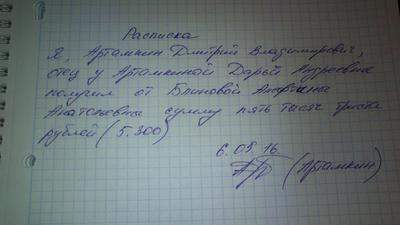 Расписка
Я, Артамкин Дмитрий Владимирович,
отец у Артамкиной Дарьи Андреевна
получил от Блиновой
Анатольевна сумму пять тысяч триста
рублей (5.300)
6.05.16
(Артамкин)